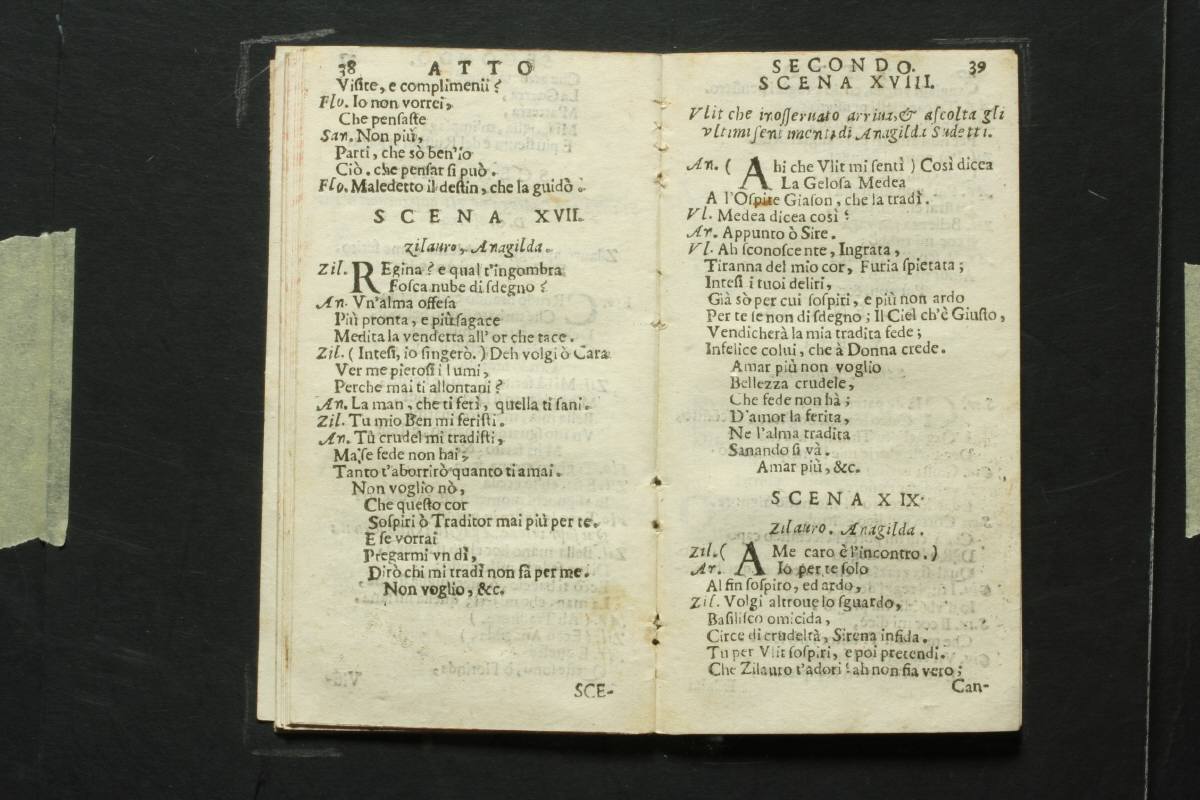 38 ATTO
Visite, e complimenii?
Flo. Io non vorrei,
Che pensaste
San. Non più,
Parti, che sò ben'io
Ciò. che pensar si può.
Flo. Maledetto il destin, che la guidò.
SCENA XVII.
Zilauro, Anagilda.
Zil. REgina? e qual t'ingombra
Fosca nube di sdegno?
An. Vn'alma offesa
Più pronta, e più sagace
Medita la vendetta all' or che tace.
Zil. (Intesi, io fingerò.) Deh volgi ò Cara
Ver me pietosi i lumi,
Perche mai ti allontani?
An. La man, che ti ferì, quella ti sani.
Zil. Tu mio Ben mi feristi.
An. Tù crudel mi tradisti,
Ma, se fede non hai,
Tanto t'aborrirò quanto ti amai.
Non voglio nò,
Che questo cor
Sospiri ò Traditor mai più per te.
E se vorrai
Pregarmi vn dì,
Dirò chi mi tradì non fà per me.
Non voglio, &c.
SCE-
SECONDO. 39
SCENA XVIII.
Vlit che inosseruato arriua, & ascolta gli
vltimi sentimenti di Anagilda Sudetti.
An. ( Ahi che Vlit mi sentì ) Così dicea
La Gelosa Medea
A l'Ospite Giason, che la tradì.
Vl. Medea dicea così?
An. Appunto ò Sire.
Vl. Ah sconoscente, Ingrata,
Tiranna del mio cor, Furia spietata;
Intesi i tuoi deliri,
Già sò per cui sospiri, e più non ardo
Per te se non di sdegno; Il Ciel ch'è Giusto,
Vendicherà la mia tradita fede;
Infelice colui, che à Donna crede.
Amar più non voglio
Bellezza crudele,
Che fede non hà;
D'amor la ferita,
Ne l'alma tradita
Sanando si và.
Amar più, &c.
SCENA XIX.
Zilauro. Anagilda.
Zil. ( AMe caro è l'incontro. )
An. Io per te solo
Al fin sospiro, ed ardo,
Zil. Volgi altroue lo sguardo,
Basilisco omicida,
Circe di crudeltà, Sirena infida.
Tu per Vlit sospiri, e poi pretendi.
Che Zilauro t'adori! ah non fia vero;
Can-